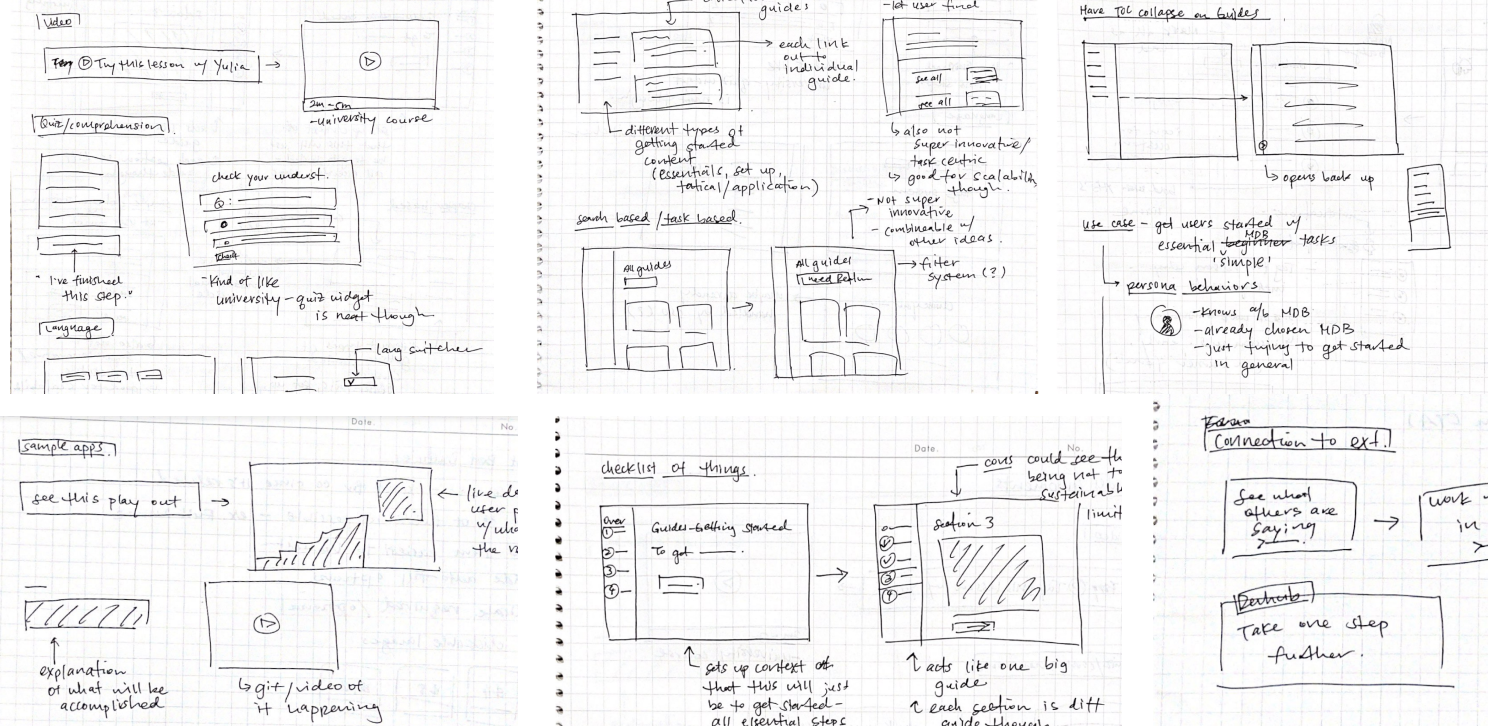 Video
Try this lesson w/ Yulia
2m-5m
-university course
Quiz/comprehension
check your underst.
Q:
check
"I've finished
this step."
-Kind of like
university-quiz widget
is neat though
Language
lang switcher
guides
each link
out to
individual
guide.
different types of
getting started
content
(essentials, set up,
tatical/application)
-let user find
see all
see all
also not
super innovative/
task centric
good for scalability
though.
search based/task based.
-Not super
innovative
-combineable w/
other ideas.
All guides
All guides
I need Realm
filter
system(?)
Have TOC collapse on Guides
opens back up
use case - get users started w/
MDB
essential beginner tasks
'simple'
persona behaviors
-knows a/b MDB
-already chosen MDB
-just trying to get started
in general
Date.
No
sample apps.
see this play out
live de
user p
w/wha
the
explanation
of what will be
accomplished
gif/video of
it happening
Date.
No.
checklist of things.
Over
1
2
3
4
Guides-Getting Started
To get
sets up context of
that this will just
be to get started-
all essential steps
cons could see th
being not to
sustainabl
limit
Section 3
3
4
acts like one big
guide
each section is diff
guide though
Connection to ext.
See what
others are
saying
work
in
Devhub
Take one step
further.